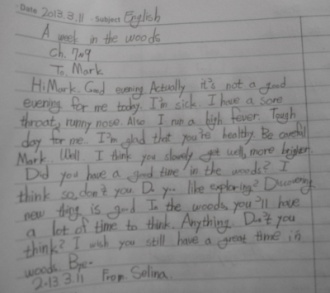 Date 2013.3.11 Subject English
A week in the woods
Ch. 7~9
To. Mark
Hi Mark. Good evening. Actually it's not a good
evening for me today. I'm sick. I have a sore
throat, runny nose. Also I run a high fever. Tough
day for me. I'm glad that you're healthy. Be careful
Mark. Well I think you slowly get well, more higher.
Did you have a good time in the woods? I
think so, don't you. Do you like exploring? Discovering
new thing is good. In the woods you'll have
a lot of time to think. Anything. Don't you
think? I wish you still have a great time in
woods. Bye~
2013 3.11 From Selina.